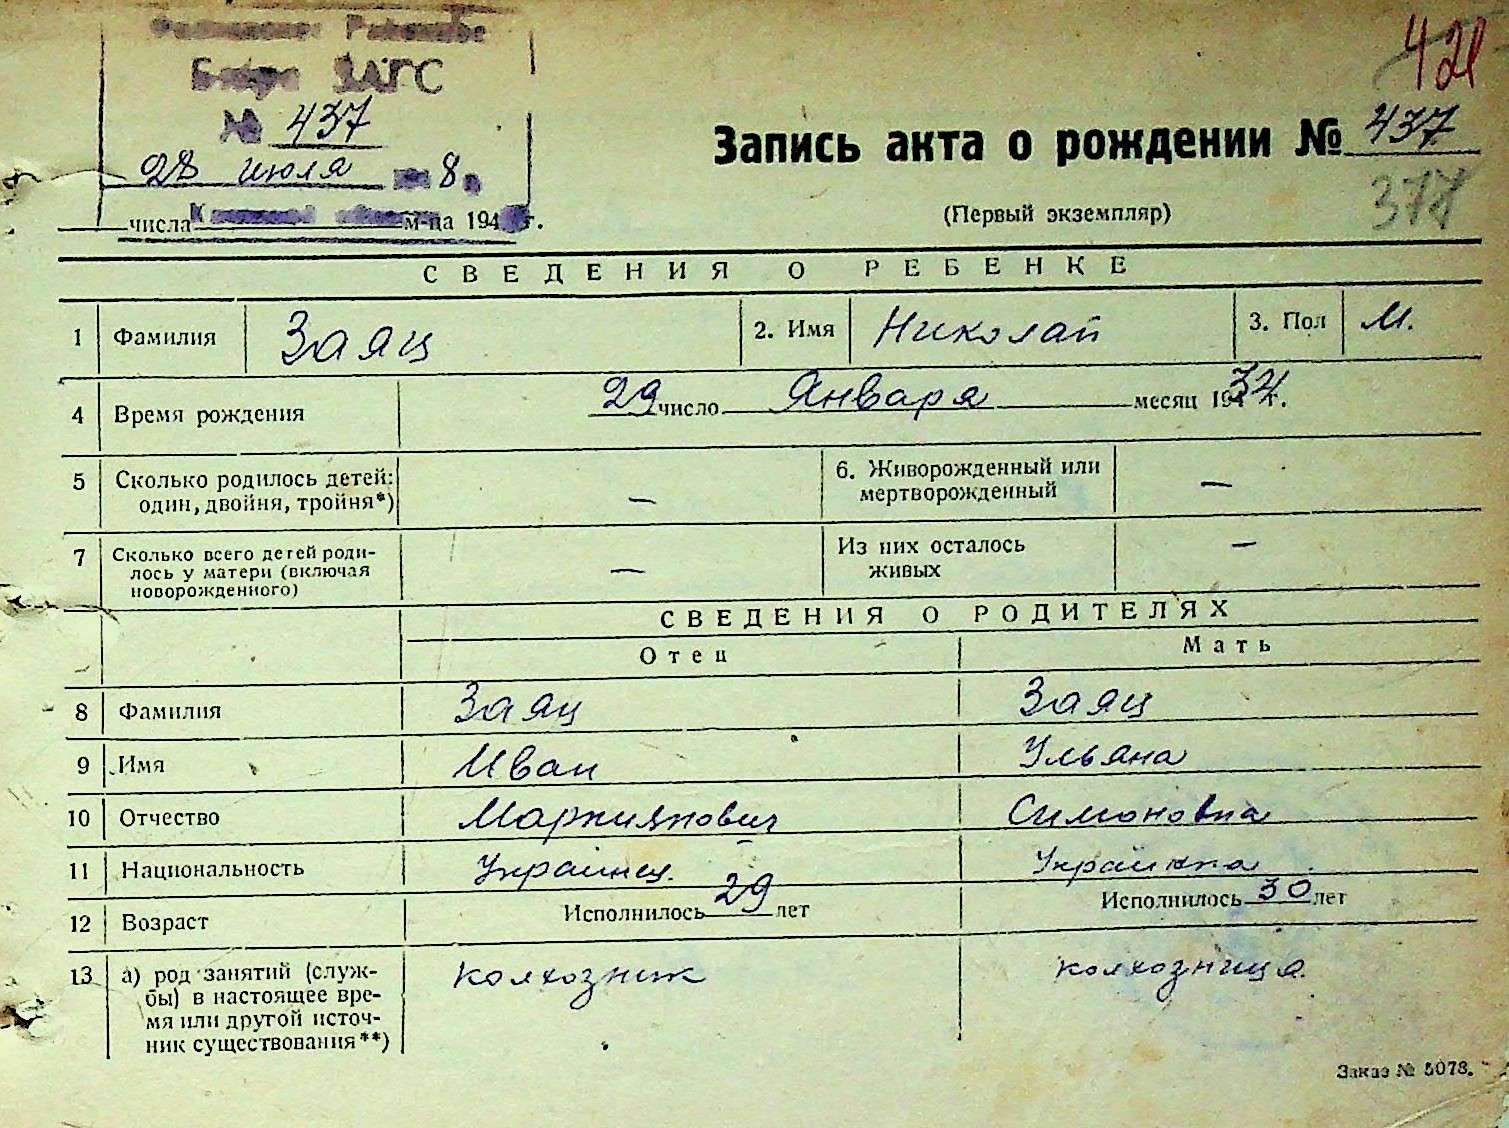 Бюро ЗАГС
№ 437
28 июля 8
числа м-ца 194 г.
421
Запись акта о рождении № 437
377
(Первый экземпляр)
СВЕДЕНИЯ О РЕБЕНКЕ
1 Фамилия Заяц 2. Имя Николай 3. Пол М.
4 Время рождения 29 число Января месяц 19 г.
5 Сколько родилось детей: один, двойня, тройня*) — 6. Живорожденный или мертворожденный —
7 Сколько всего детей роди-
лось у матери (включая
новорожденного) — Из них осталось живых —
СВЕДЕНИЯ О РОДИТЕЛЯХ
Отец Мать
8 Фамилия Заяц Заяц
9 Имя Иван Ульяна
10 Отчество Маркиянович Симоновна
11 Национальность Украинец. Украинка
12 Возраст Исполнилось 29 лет Исполнилось 30 лет
13 а) род занятий (служ- колхозник колхозница
бы) в настоящее вре-
мя или другой источ-
ник существования**)
Заказ № 5073.